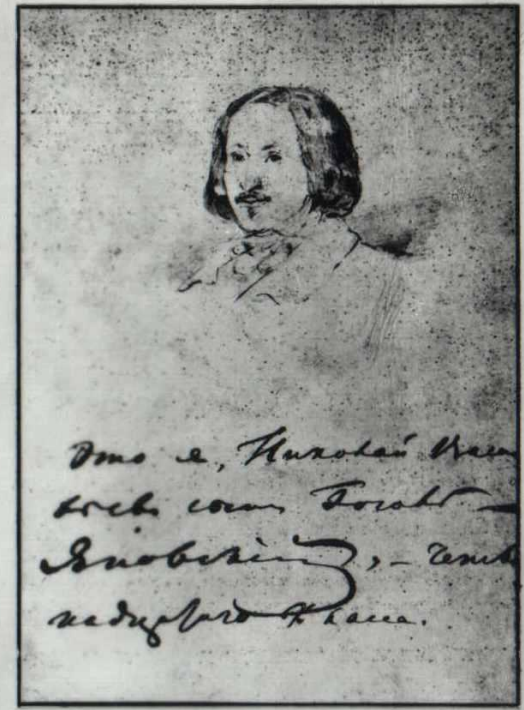 Это я, Николай Васи
льевъ сынъ Гоголь –
Яновскій, – четыр
надцатого класса.